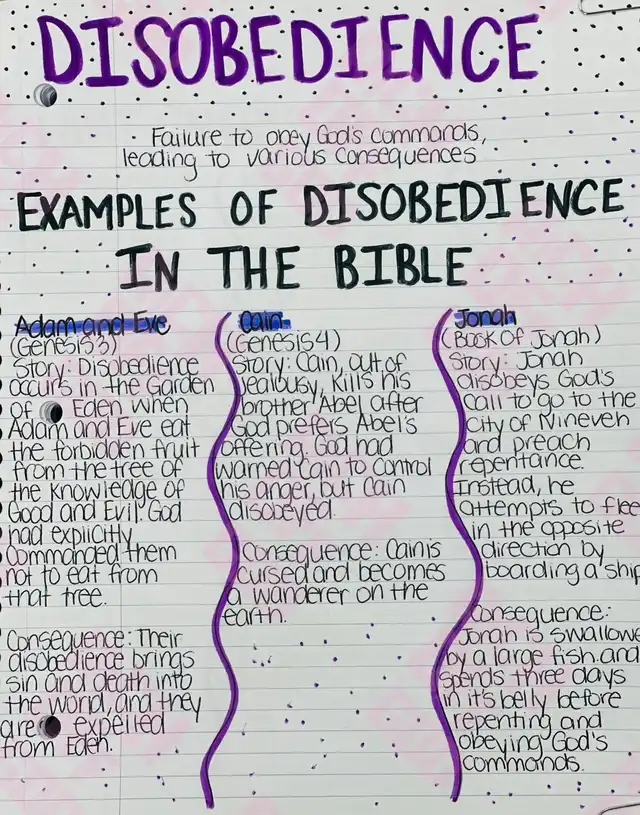 DISOBEDIENCE
Failure to obey God's commands,
leading to various consequences
EXAMPLES OF DISOBEDIENCE
IN THE BIBLE
Adam and Eve
(Genesis 3)
Story: Disobedience
occurs in the Garden
of Eden when
Adam and Eve eat
the forbidden fruit
from the tree of
the knowledge of
Good and Evil. God
had explicitly
commanded them
not to eat from
that tree.
Consequence: Their
disobedience brings
sin and death into
the world, and they
are expelled
from Eden.
Cain
(Genesis 4)
Story: Cain, out of
jealousy, kills his
brother Abel after
God prefers Abel's
offering. God had
warned Cain to control
his anger, but Cain
disobeyed.
Consequence: Cain is
cursed and becomes
a wanderer on the
earth.
Jonah
(Book of Jonah)
Story: Jonah
disobeys God's
call to go to the
city of Nineveh
and preach
repentance.
Instead, he
attempts to flee
in the opposite
direction by
boarding a ship
Consequence:
Jonah is swallowe
by a large fish and
spends three days
in it's belly before
repenting and
obeying God's
commands.